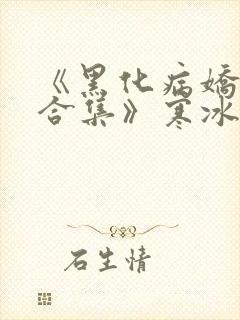 《黑化病娇
合集》寒冰
石生情